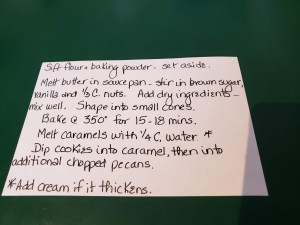 Sift flour + baking powder - set aside.
Melt butter in saucepan - stir in brown sugar,
vanilla and 1/3 C. nuts. Add dry ingredients -
mix well. Shape into small cones.
Bake @ 350° for 15-18 mins.
Melt caramels with 1/4 C. water. *
Dip cookies into caramel, then into
additional chopped pecans.
*Add cream if it thickens.